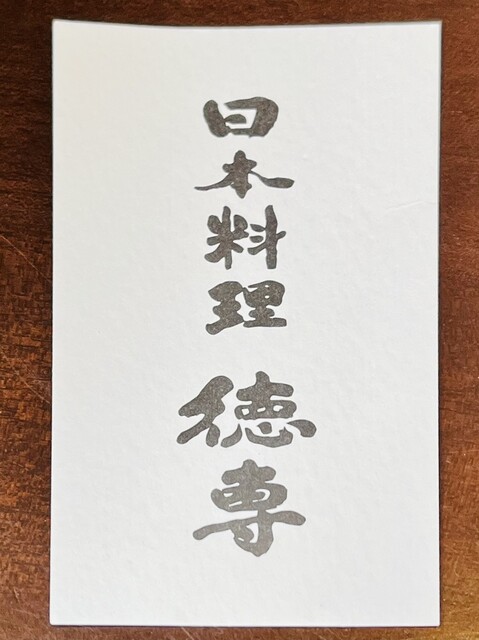 日本料理 徳専